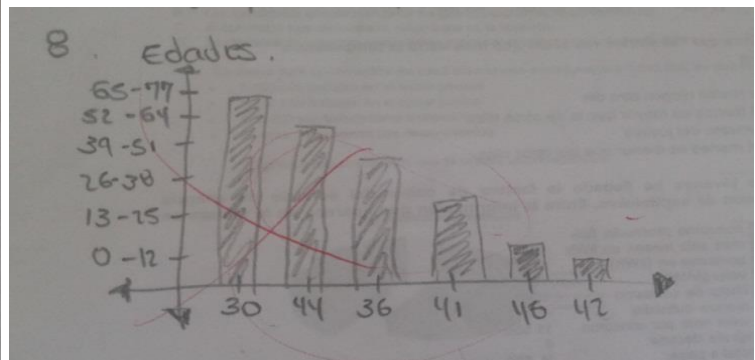 8. Edades.
65-77
52-64
39-51
26-38
13-25
0-12
30 44 36 41 46 42